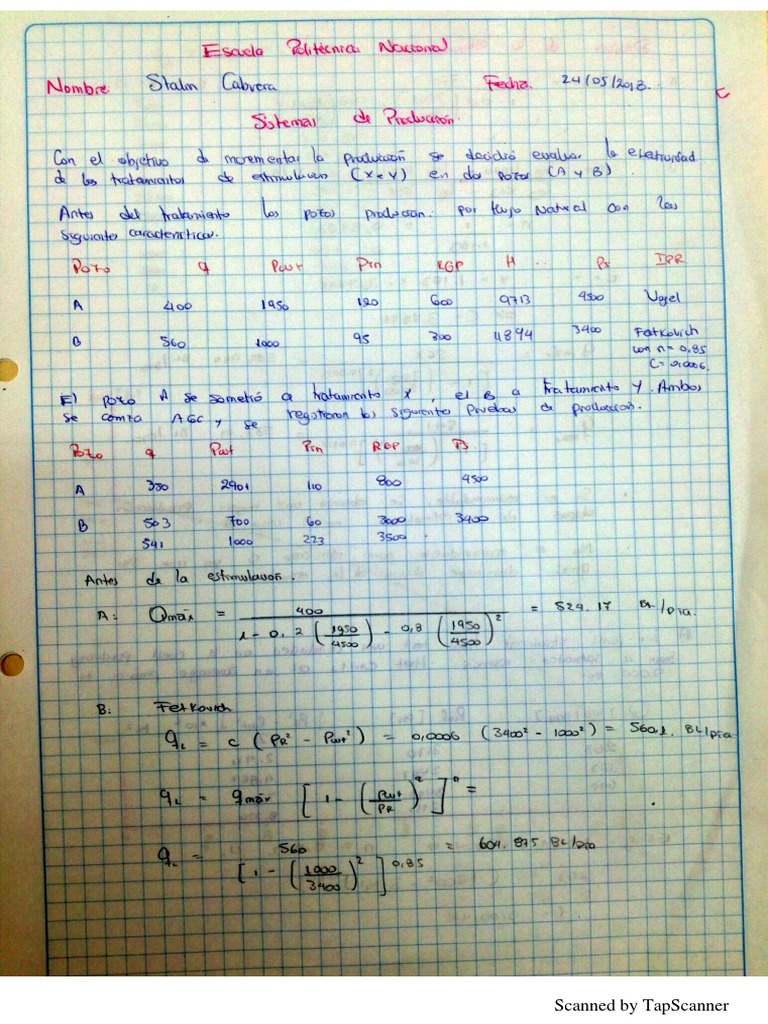 Escuela Politécnica Nacional
Nombre: Stalin Cabrera Fecha: 24/05/2018.
Sistemas de Producción.
Con el objetivo d incrementar la producción se decidió evaluar la efectividad
de los tratamientos de estimulación (X e Y) en dos pozos (A y B).
Antes del tratamiento los pozos producian. por flujo Natural con las
siguientes caracteristicas.
Pozo q Pwf Pin RGP H Ps IPR
A 400 1950 120 600 9713 4500 Vogel
B 560 1000 95 300 11894 3400 Fetkovich
con n = 0,85
C = 0,0006.
El pozo A se sometió a tratamiento X, el B a tratamiento Y. Ambos
se comza AGC y se registraron los siguiente pruebas de producción.
Pozo q Pwf Pin RGP Ps
A 350 2901 110 800 4500
B 503 700 60 3000 3400
541 1000 223 3500
Antes de la estimulación.
A: Qmáx = 400 / 1 - 0,2 (1950/4500) - 0,8 (1950/4500)² = 529.17 Br/Día.
B: Fetkovich
qL = c (PR² - Pwf²) = 0,0006 (3400² - 1000²) = 560,1. BL/Día
qL = qmáx [1 - (Pwf/PR)²]ⁿ =
qL = 560 / [1 - (1000/3400)²]^0,85 = 604.875 BL/Día
Scanned by TapScanner